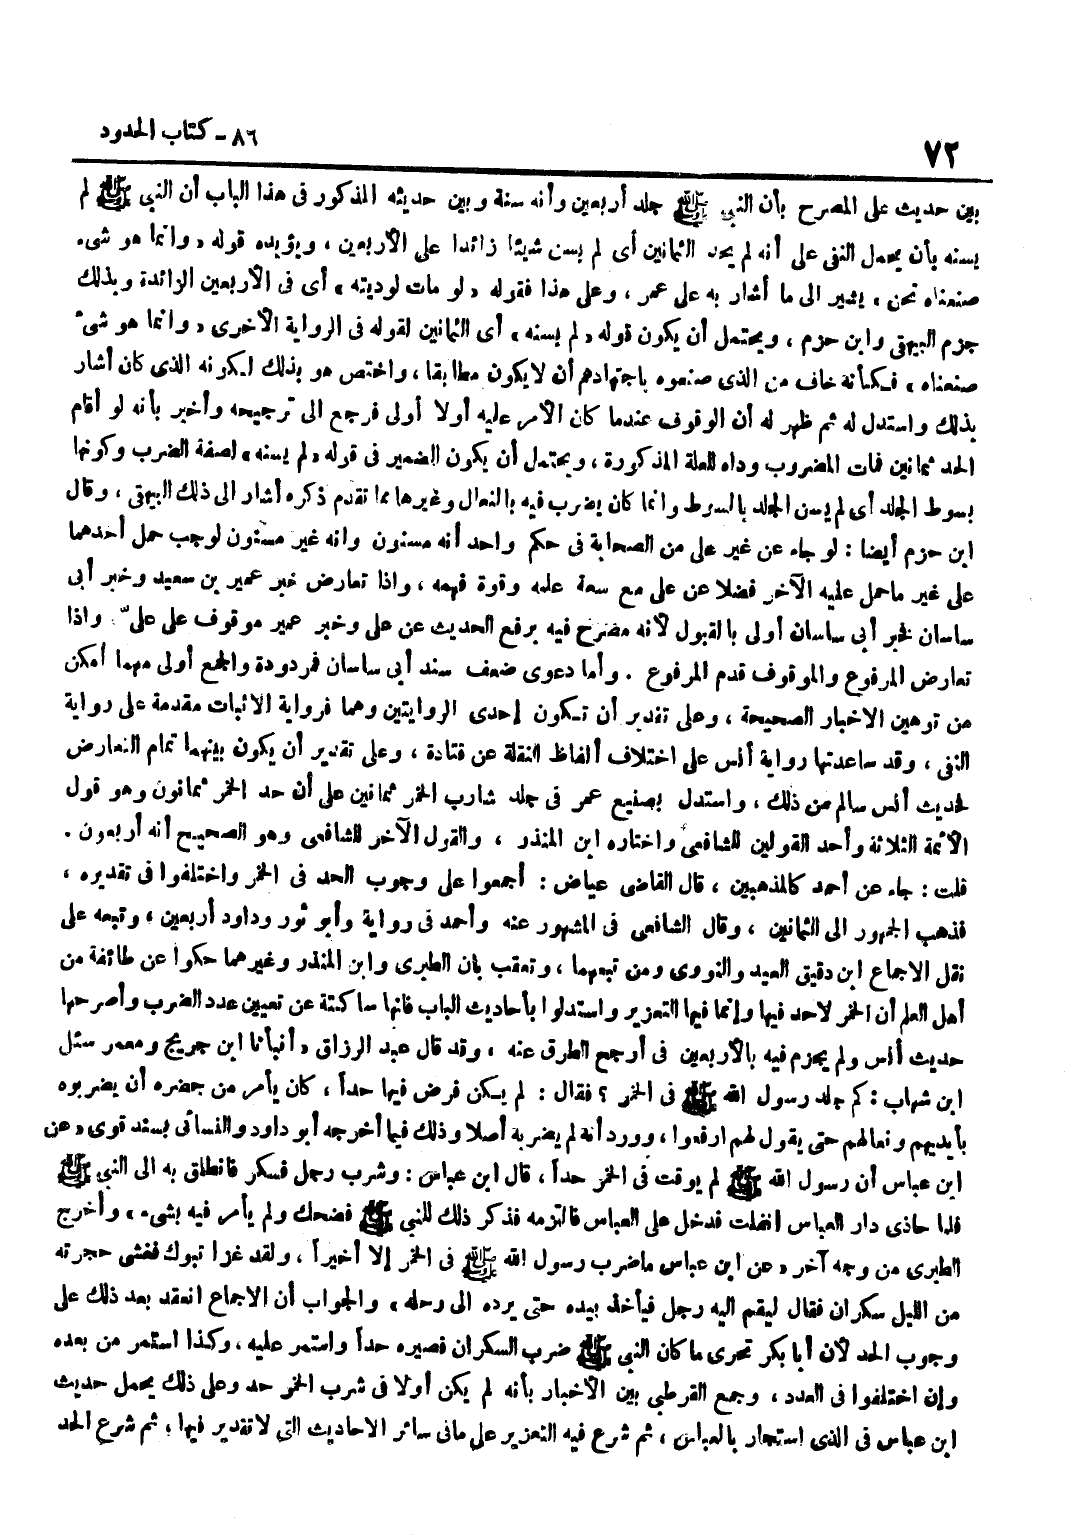 ٧٢
٨٦ - كتاب الحدود
بين حديث على المصرح بأن النبي ﷺ جلد أربعين وأنه سنة وبين حديثه المذكور فى هذا الباب أن النبي ﷺ لم
يسنه بأن يحمل النفى على أنه لم يحد الثمانين أى لم يسن شيئا زائدا على الأربعين ، ويؤيده قوله « وانما هو شىء
صنعناه نحن » يشير الى ما أشار به على عمر ، وعلى هذا فقوله « لو مات لوديته » أى فى الأربعين الزائدة وبذلك
جزم البيهقى وابن حزم ، ويحتمل أن يكون قوله « لم يسنه » أى الثمانين لقوله فى الرواية الأخرى « وانما هو شىء
صنعناه » فكأنه خاف من الذى صنعوه باجتهادهم أن لا يكون مطابقا ، واختص هو بذلك لكونه الذى كان أشار
بذلك واستدل له ثم ظهر له أن الوقوف عندما كان الأمر عليه أولا أولى فرجع الى ترجيحه وأخبر بأنه لو أقام
الحد ثمانين فمات المضروب وداه للعلة المذكورة ، ويحتمل أن يكون الضمير فى قوله « لم يسنه » لصفة الضرب وكونها
بسوط الجلد أى لم يسن الجلد بالسوط وانما كان يضرب فيه بالنعال وغيرها مما تقدم ذكره أشار الى ذلك البيهقى ، وقال
ابن حزم أيضا : لو جاء عن غير على من الصحابة فى حكم واحد أنه مسنون وانه غير مسنون لوجب حمل أحدهما
على غير ما حمل عليه الآخر فضلا عن على مع سعة علمه وقوة فهمه ، واذا تعارض خبر عمير بن سعيد وخبر أبى
ساسان فخبر أبى ساسان أولى بالقبول لأنه مصرح فيه برفع الحديث عن على وخبر عمير موقوف على علىّ ، واذا
تعارض المرفوع والموقوف قدم المرفوع . وأما دعوى ضعف سند أبى ساسان فمردودة والجمع أولى مهما أمكن
من توهين الاخبار الصحيحة ، وعلى تقدير أن تكون إحدى الروايتين وهما فرواية الاثبات مقدمة على رواية
النفى ، وقد ساعدتها رواية أنس على اختلاف ألفاظ النقلة عن قتادة ، وعلى تقدير أن يكون بينهما تمام التعارض
فحديث أنس سالم من ذلك ، واستدل بصنيع عمر فى جلد شارب الخمر ثمانين على أن حد الخمر ثمانون وهو قول
الأئمة الثلاثة وأحد القولين للشافعى واختاره ابن المنذر ، والقول الآخر للشافعى وهو الصحيح أنه أربعون .
قلت : جاء عن أحمد كالمذهبين ، قال القاضى عياض : أجمعوا على وجوب الحد فى الخمر واختلفوا فى تقديره ،
فذهب الجمهور الى الثمانين ، وقال الشافعى فى المشهور عنه وأحمد فى رواية وأبو ثور وداود أربعين ، وتبعه على
نقل الاجماع ابن دقيق العيد والنووى ومن تبعهما ، وتعقب بان الطبرى وابن المنذر وغيرهما حكوا عن طائفة من
أهل العلم أن الخمر لا حد فيها وإنما فيها التعزير واستدلوا بأحاديث الباب فانها ساكتة عن تعيين عدد الضرب وأصرحها
حديث أنس ولم يجزم فيه بالأربعين فى أرجح الطرق عنه ، وقد قال عبد الرزاق « أنبأنا ابن جريج ومعمر سئل
ابن شهاب : كم جلد رسول الله ﷺ فى الخمر ؟ فقال : لم يكن فرض فيها حداً ، كان يأمر من حضره أن يضربوه
بأيديهم ونعالهم حتى يقول لهم ارفعوا ، وورد أنه لم يضربه أصلا وذلك فيما أخرجه أبو داود والنسائى بسند قوى « عن
ابن عباس أن رسول الله ﷺ لم يوقت فى الخمر حداً ، قال ابن عباس : وشرب رجل فسكر فانطلق به الى النبي ﷺ
فلما حاذى دار العباس انفلت فدخل على العباس فالتزمه فذكر ذلك للنبي ﷺ فضحك ولم يأمر فيه بشىء » وأخرج
الطبرى من وجه آخر « عن ابن عباس ما ضرب رسول الله ﷺ فى الخمر إلا أخيراً ، ولقد غزا تبوك فغشى حجرته
من الليل سكران فقال ليقم اليه رجل فيأخذ بيده حتى يرده الى رحله » والجواب أن الاجماع انعقد بعد ذلك على
وجوب الحد لأن أبا بكر تحرى ما كان النبي ﷺ ضرب السكران فصيره حداً واستمر عليه ، وكذا استمر من بعده
وإن اختلفوا فى العدد ، وجمع القرطبى بين الأخبار بأنه لم يكن أولا فى شرب الخمر حد وعلى ذلك يحمل حديث
ابن عباس فى الذى استجار بالعباس ، ثم شرع فيه التعزير على ما فى سائر الاحاديث التى لا تقدير فيها ، ثم شرع الحد